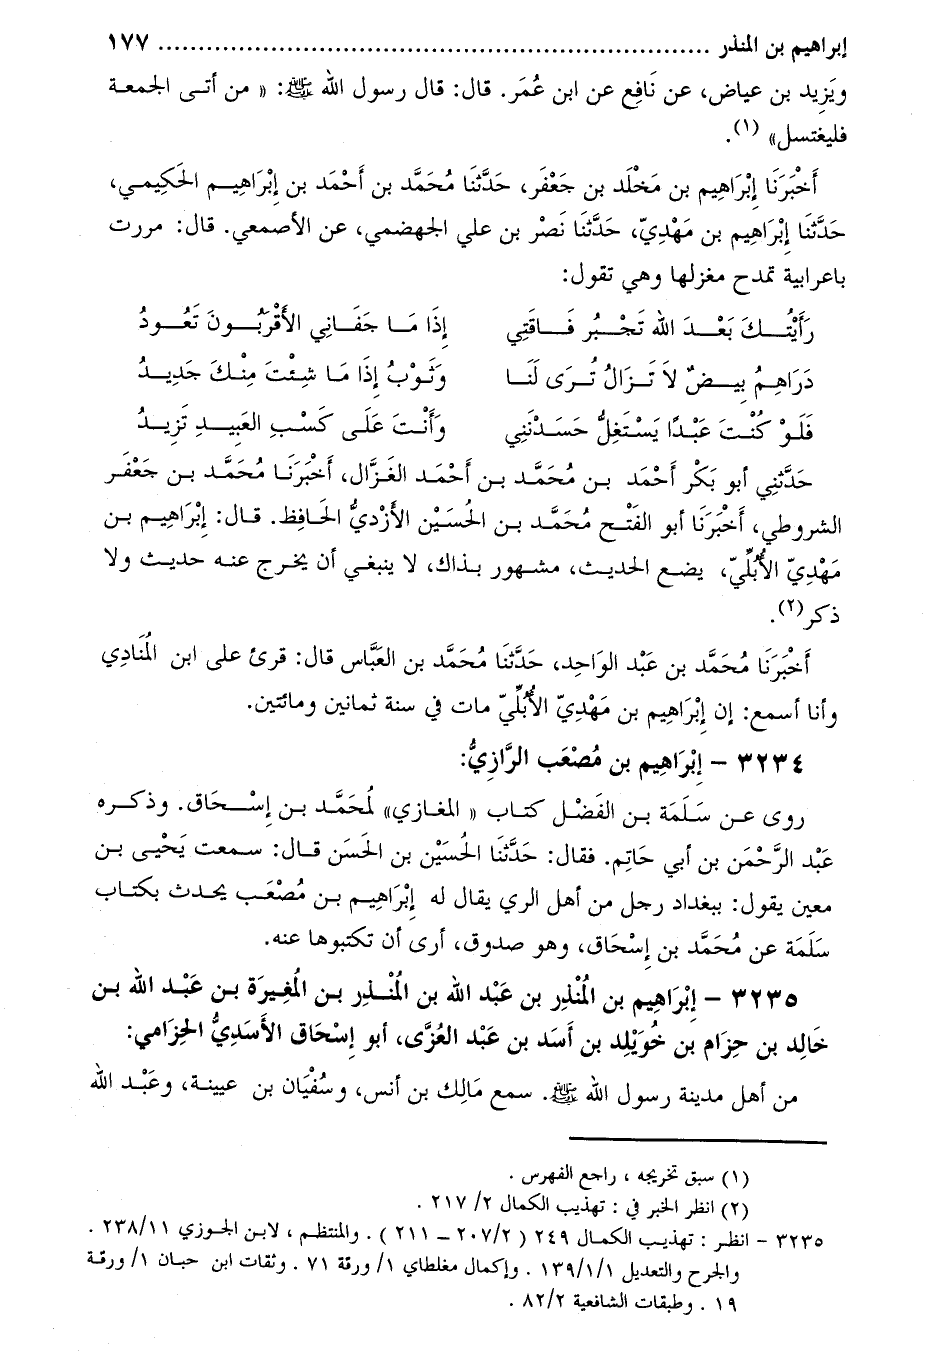 إبراهيم بن المنذر ..................................................................... ١٧٧
ويَزِيد بن عياض، عن نَافِع عن ابن عُمَر. قال: قال رسول الله ﷺ: « من أتى الجمعة
فليغتسل» (١).
أَخْبَرَنَا إِبْرَاهِيم بن مَخْلَد بن جَعْفَر، حَدَّثَنَا مُحَمَّد بن أَحْمَد بن إِبْرَاهِيم الحَكِيمي،
حَدَّثَنَا إِبْرَاهِيم بن مَهْدِيّ، حَدَّثَنَا نَصْر بن علي الجهضمي، عن الأصمعي. قال: مررت
باعرابية تمدح مغزلها وهي تقول:
رَأَيْتُكَ بَعْدَ الله تَجْبُر فَاقَتِي إِذَا مَا جَفَانِي الأَقْرَبُونَ تَعُودُ
دَرَاهِمُ بِيضٌ لاَ تَزَالُ تُرَى لَنَا وَثَوْبُ إِذَا مَا شِئْتَ مِنْكَ جَدِيدُ
فَلَوْ كُنْتَ عَبْدًا يَسْتَغِلُّ حَسَدْتَنِي وَأَنْتَ عَلَى كَسْبِ العَبِيدِ تَزِيدُ
حَدَّثَنِي أبو بَكْر أَحْمَد بن مُحَمَّد بن أَحْمَد الغَزَّال، أَخْبَرَنَا مُحَمَّد بن جَعْفَر
الشروطي، أَخْبَرَنَا أبو الفَتْح مُحَمَّد بن الحُسَيْن الأزْديُّ الحَافِظ. قال: إِبْرَاهِيم بن
مَهْدِيّ الأُبُلِّيّ، يضع الحديث، مشهور بذاك، لا ينبغي أن يخرج عنه حديث ولا
ذكر(٢).
أَخْبَرَنَا مُحَمَّد بن عَبْد الوَاحِد، حَدَّثَنَا مُحَمَّد بن العَبَّاس قال: قرئ على ابن المُنَادِي
وأنا أسمع: إن إِبْرَاهِيم بن مَهْدِيّ الأُبُلِّيّ مات في سنة ثمانين ومائتين.
٣٢٣٤ – إِبْرَاهِيم بن مُصْعَب الرَّازِيُّ:
روى عن سَلَمَة بن الفَضْل كتاب « المغازي» لمُحَمَّد بن إِسْحَاق. وذكره
عَبْد الرَّحْمَن بن أبي حَاتِم. فقال: حَدَّثَنَا الحُسَيْن بن الحَسَن قال: سمعت يَحْيى بن
معين يقول: ببغداد رجل من أهل الري يقال له إِبْرَاهِيم بن مُصْعَب يحدث بكتاب
سَلَمَة عن مُحَمَّد بن إِسْحَاق، وهو صدوق، أرى أن تكتبوها عنه.
٣٢٣٥ – إِبْرَاهِيم بن المُنْذِر بن عَبْد الله بن المُنْذِر بن المُغِيرَة بن عَبْد الله بن
خَالِد بن حِزَام بن خُوَيْلِد بن أَسَد بن عَبْد العُزَّى، أبو إِسْحَاق الأَسَدِيُّ الحِزَامي:
من أهل مدينة رسول الله ﷺ. سمع مَالِك بن أنس، وسُفْيَان بن عيينة، وعَبْد الله
(١) سبق تخريجه ، راجع الفهرس .
(٢) انظر الخبر في : تهذيب الكمال ٢/ ٢١٧ .
٣٢٣٥ – انظر : تهذيب الكمال ٢٤٩ ( ٢٠٧/٢ – ٢١١ ) . والمنتظم ، لابن الجوزي ٢٣٨/١١ .
والجرح والتعديل ١٣٩/١/١ . وإكمال مغلطاي ١/ ورقة ٧١ . وثقات ابن حبان ١/ ورقة
١٩ . وطبقات الشافعية ٨٢/٢ .